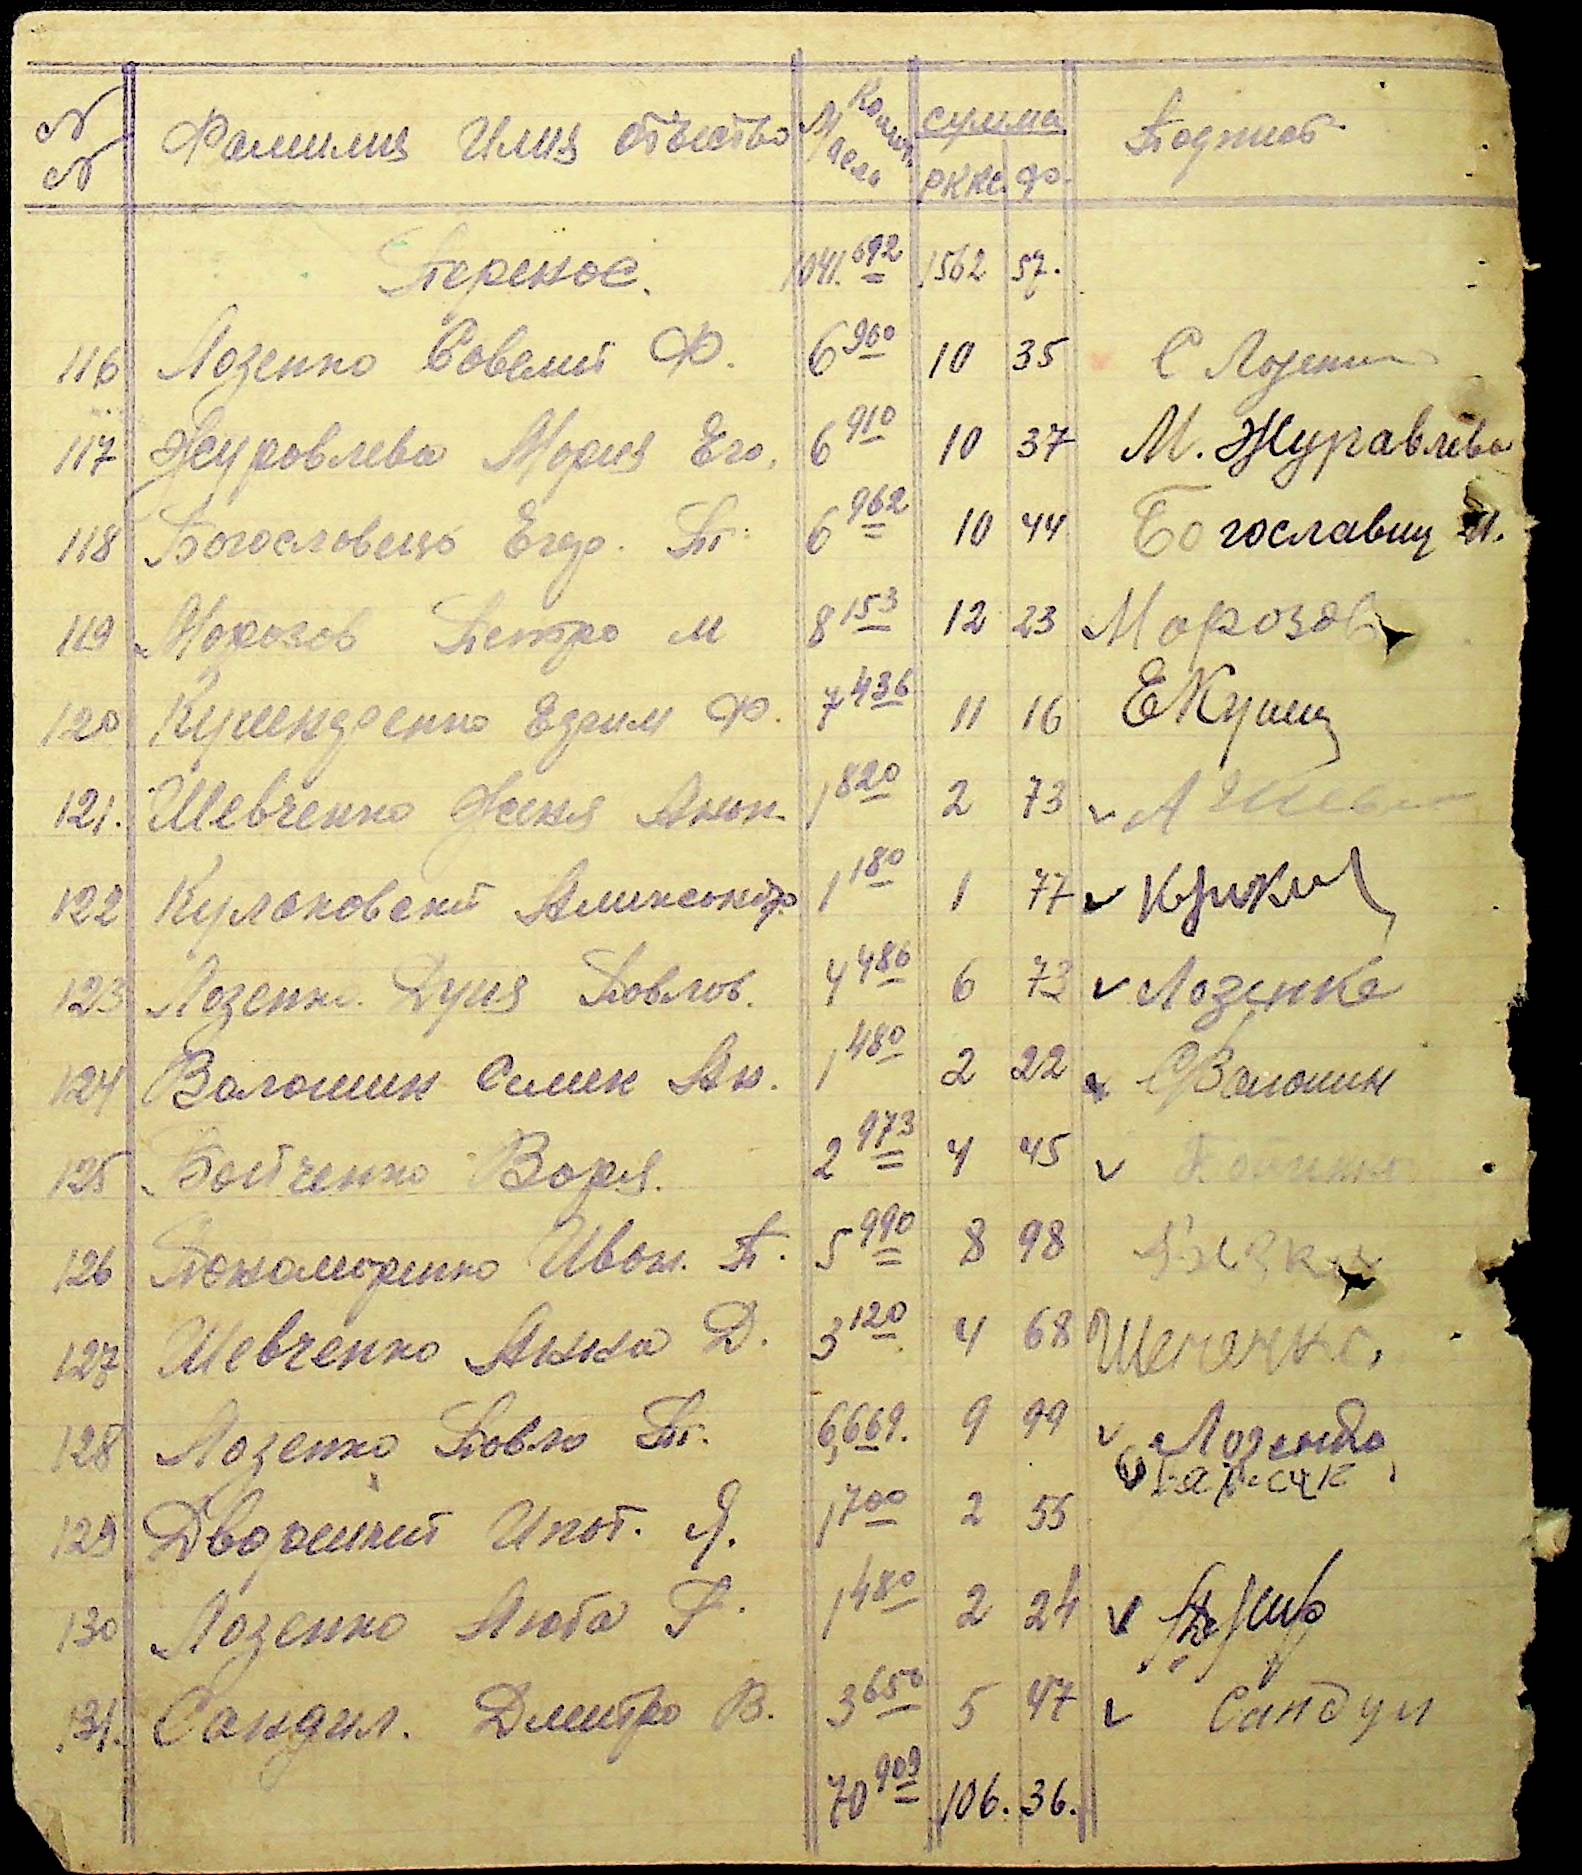 №№ Фамилия Имя Отчество Колич. сумма Подпись
Перенос. 1041.692 1562 57.
116 Лозенко Совелий Ф. 6 960 10 35 С Лозен
117 Журовлева Мория Его. 6 910 10 37 М. Журавлева
118 Богословець Егор. П. 6 962 10 44 Богославец И.
119 Морозов Петро М 8 153 12 23 Морозов
120 Едким Ф. 7 436 11 16 ЕКушн
121. Шевченко Женя Анон. 1 820 2 73 А Шев
122 Кулоковский Аликсондр. 1 180 1 77
123 Лозенко Дуня Повлов. 4 486 6 73 Лозенко
124 Волошин Симен Ан. 1 480 2 22 СВолошин
125 Бойченко Воря. 2 973 4 45
126 Пономоренко Ивон. П. 5 990 8 98
127 Шевченко Анна Д. 3 120 4 68
128 Лозенко Повло П. 6,669. 9 99 Лозенко
129 Дворецкий Игнот. Я. 1 700 2 55
130 Лозенко Люба Г. 1 480 2 24
131. Сондул. Дмитро В. 3 650 5 47 Сандул
70 909 106. 36.